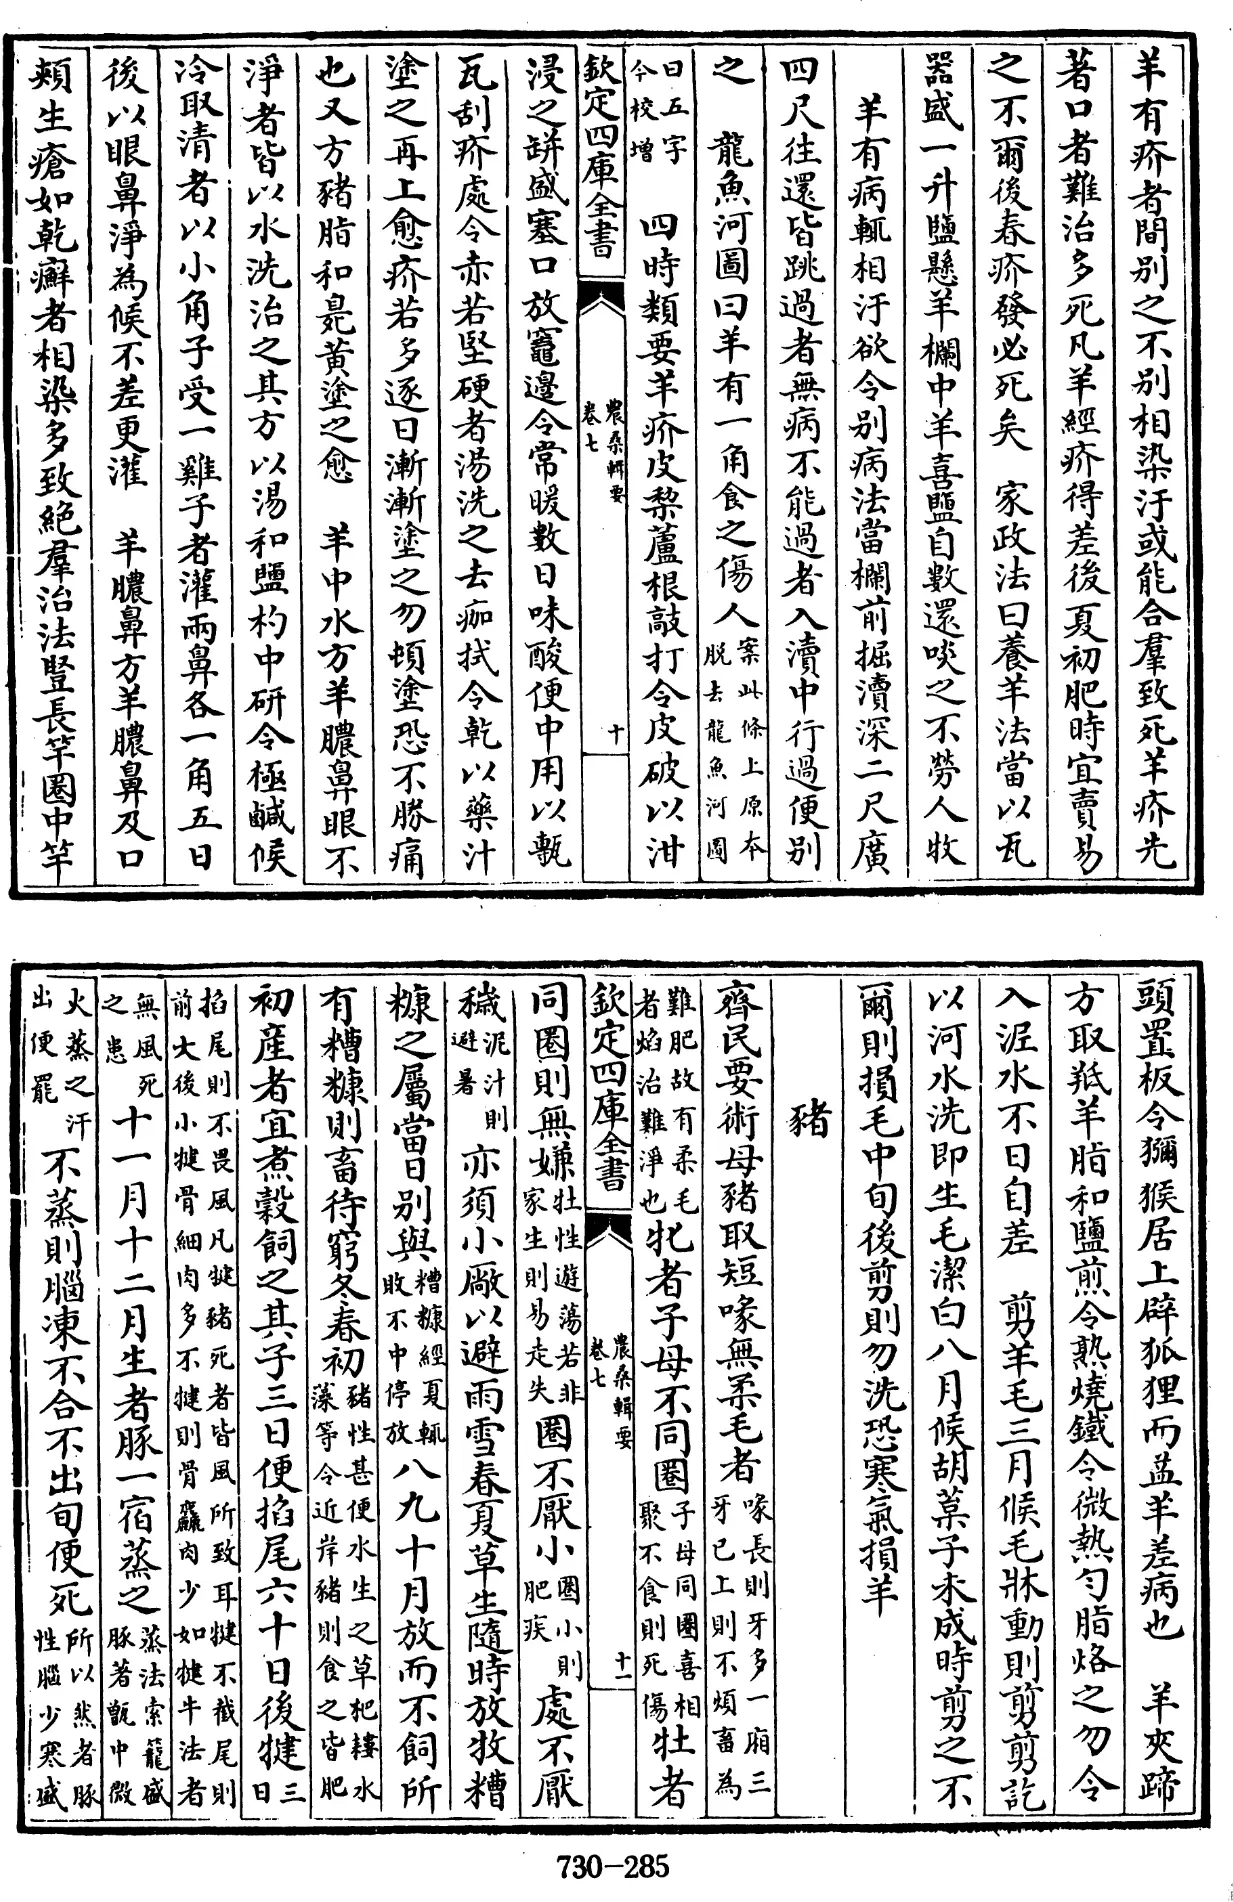 羊有疥者間别之不别相染汙或能合羣致死羊疥先
著口者難治多死凡羊經疥得差後夏初肥時宜賣易
之不爾後春疥發必死矣　家政法曰養羊法當以瓦
器盛一升鹽懸羊欄中羊喜鹽自數還啖之不勞人牧
羊有病輒相汙欲令别病法當欄前掘瀆深二尺廣
四尺往還皆跳過者無病不能過者入瀆中行過便别
之　龍魚河圖曰羊有一角食之傷人案此條上原本脱去龍魚河圖
曰五字今校增　四時類要羊疥皮藜蘆根敲打令皮破以泔
欽定四庫全書　農桑輯要卷七　十
浸之缾盛塞口放竈邊令常暖數日味酸便中用以甎
瓦刮疥處令赤若堅硬者湯洗之去痂拭令乾以藥汁
塗之再上愈疥若多逐日漸漸塗之勿頓塗恐不勝痛
也又方豬脂和臭黃塗之愈　羊中水方羊膿鼻眼不
淨者皆以水洗治之其方以湯和鹽杓中研令極鹹候
冷取清者以小角子受一雞子者灌兩鼻各一角五日
後以眼鼻淨為候不差更灌　羊膿鼻方羊膿鼻及口
頰生瘡如乾癬者相染多致絶羣治法豎長竿圈中竿
頭置板令獼猴居上辟狐狸而益羊差病也　羊夾蹄
方取羝羊脂和鹽煎令熟燒鐵令微熱勻脂烙之勿令
入泥水不日自差　剪羊毛三月候毛牀動則剪剪訖
以河水洗即生毛潔白八月候胡葈子未成時剪之不
爾則損毛中旬後剪則勿洗恐寒氣損羊
豬
齊民要術母豬取短喙無柔毛者喙長則牙多一廂三牙已上則不煩畜為
難肥故有柔毛者焰治難淨也牝者子母不同圈子母同圈喜相聚不食則死傷牡者
欽定四庫全書　農桑輯要卷七　十一
同圈則無嫌牡性遊蕩若非家生則易走失圈不厭小圈小則肥疾處不厭
穢泥汁則避暑亦須小廠以避雨雪春夏草生隨時放牧糟
糠之屬當日别與糟糠經夏輒敗不中停放八九十月放而不飼所
有糟糠則畜待窮冬春初豬性甚便水生之草杷耬水藻等令近岸豬則食之皆肥
初産者宜煮穀飼之其子三日便掐尾六十日後犍三日
掐尾則不畏風凡犍豬死者皆風所致耳犍不截尾則前大後小犍骨細肉多不犍則骨麤肉少如犍牛法者
無風死之患十一月十二月生者豚一宿蒸之蒸法索籠盛豚著甑中微
火蒸之汗出便罷不蒸則腦凍不合不出旬便死所以然者豚性腦少寒盛
730-285